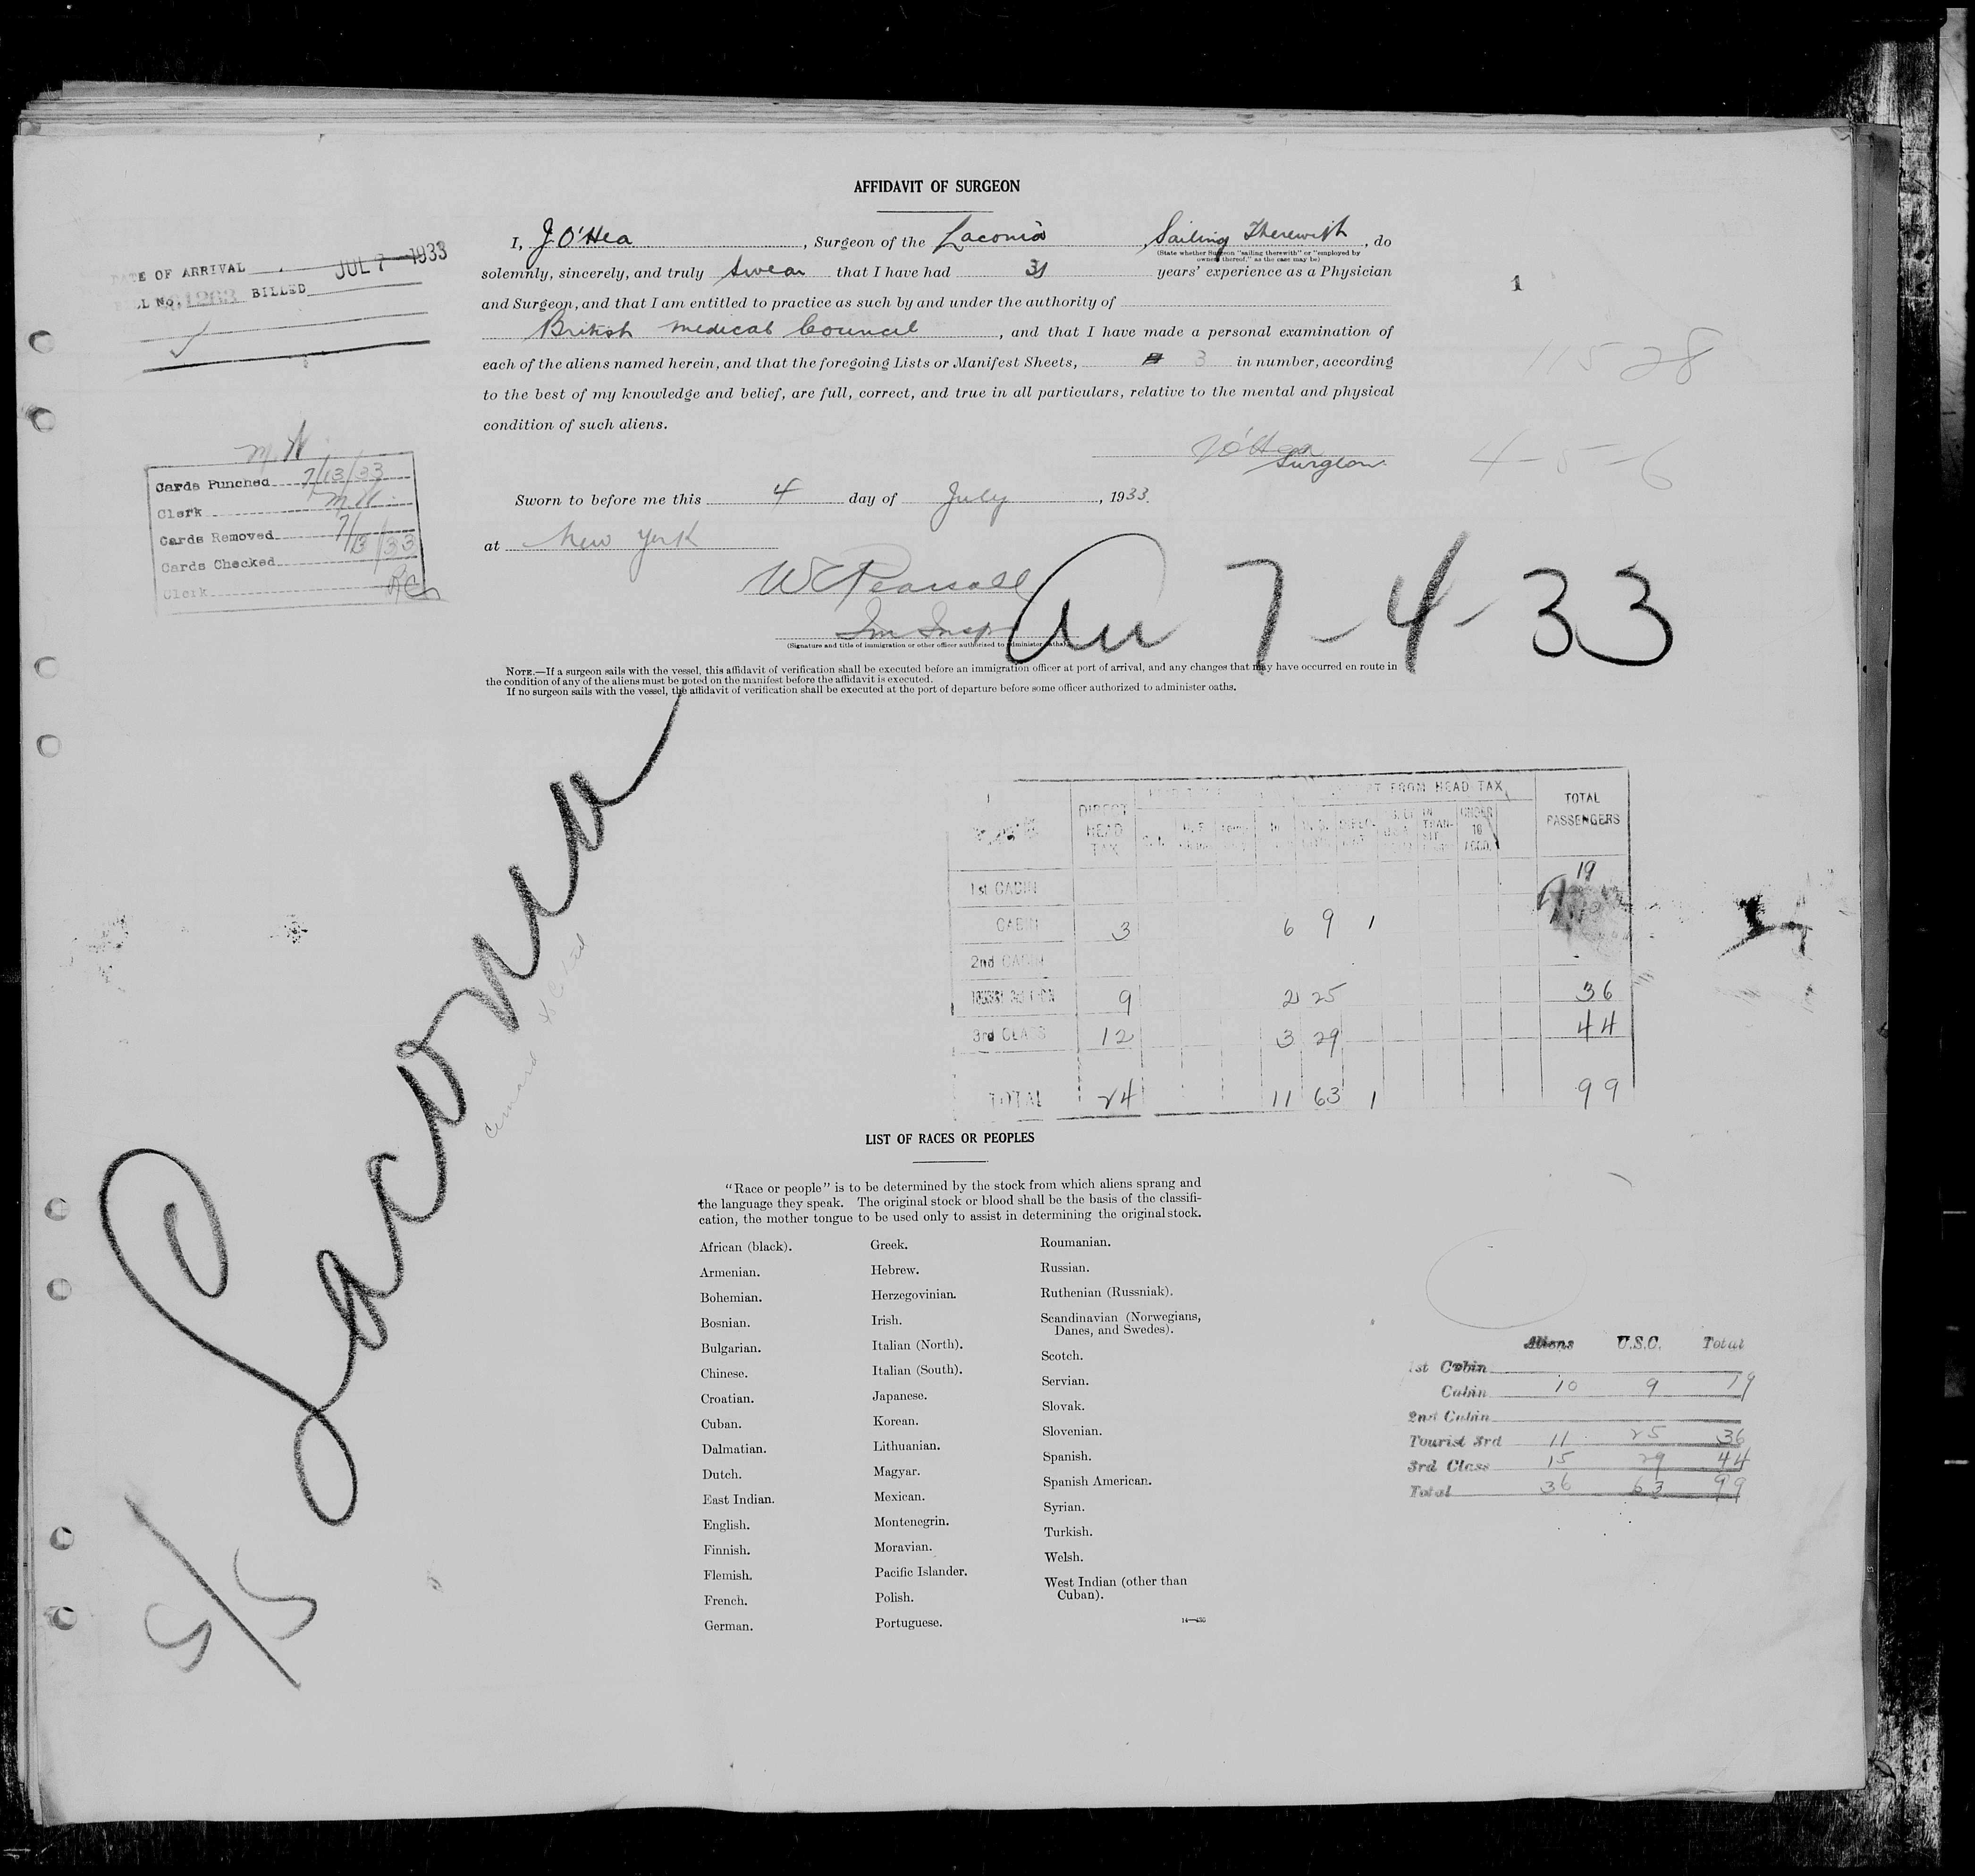 AFFIDAVIT OF SURGEON
I, J. O'Hea, Surgeon of the Laconia, Sailing Therewith, do
(State whether Surgeon "sailing therewith" or "employed by
owners thereof," as the case may be)
solemnly, sincerely, and truly swear that I have had 31 years' experience as a Physician
and Surgeon, and that I am entitled to practice as such by and under the authority of
British Medical Council, and that I have made a personal examination of
each of the aliens named herein, and that the foregoing Lists or Manifest Sheets, 3 in number, according
to the best of my knowledge and belief, are full, correct, and true in all particulars, relative to the mental and physical
condition of such aliens.
J O'Hea
Surgeon.
Sworn to before me this 4 day of July, 1933.
at New York
W C Pearsall
Im Insp
(Signature and title of immigration or other officer authorized to administer oaths)
NOTE.—If a surgeon sails with the vessel, this affidavit of verification shall be executed before an immigration officer at port of arrival, and any changes that may have occurred en route in
the condition of any of the aliens must be noted on the manifest before the affidavit is executed.
If no surgeon sails with the vessel, the affidavit of verification shall be executed at the port of departure before some officer authorized to administer oaths.
DATE OF ARRIVAL JUL 7 1933
BILL No. BILLED
M.W.
Cards Punched 7/13/33
Clerk M.W.
Cards Removed 7/13/33
Cards Checked
Clerk
1
11528
4-5-6
Arr 7-4-33
Laconia
S/S
DIRECT HEAD TAX FROM HEAD TAX TOTAL PASSENGERS
IN TRANSIT UNDER 16 ACCO.
1st CABIN 19
CABIN 3 6 9 1
2nd CABIN
TOURIST 3rd 9 2 25 36
3rd CLASS 12 3 29 44
TOTAL 24 11 63 1 99
LIST OF RACES OR PEOPLES
"Race or people" is to be determined by the stock from which aliens sprang and
the language they speak. The original stock or blood shall be the basis of the classifi-
cation, the mother tongue to be used only to assist in determining the original stock.
African (black).
Armenian.
Bohemian.
Bosnian.
Bulgarian.
Chinese.
Croatian.
Cuban.
Dalmatian.
Dutch.
East Indian.
English.
Finnish.
Flemish.
French.
German.
Greek.
Hebrew.
Herzegovinian.
Irish.
Italian (North).
Italian (South).
Japanese.
Korean.
Lithuanian.
Magyar.
Mexican.
Montenegrin.
Moravian.
Pacific Islander.
Polish.
Portuguese.
Roumanian.
Russian.
Ruthenian (Russniak).
Scandinavian (Norwegians,
Danes, and Swedes).
Scotch.
Servian.
Slovak.
Slovenian.
Spanish.
Spanish American.
Syrian.
Turkish.
Welsh.
West Indian (other than
Cuban).
Aliens U.S.C. Total
1st Cabin
Cabin 10 9 19
2nd Cabin
Tourist 3rd 11 25 36
3rd Class 15 29 44
Total 36 63 99